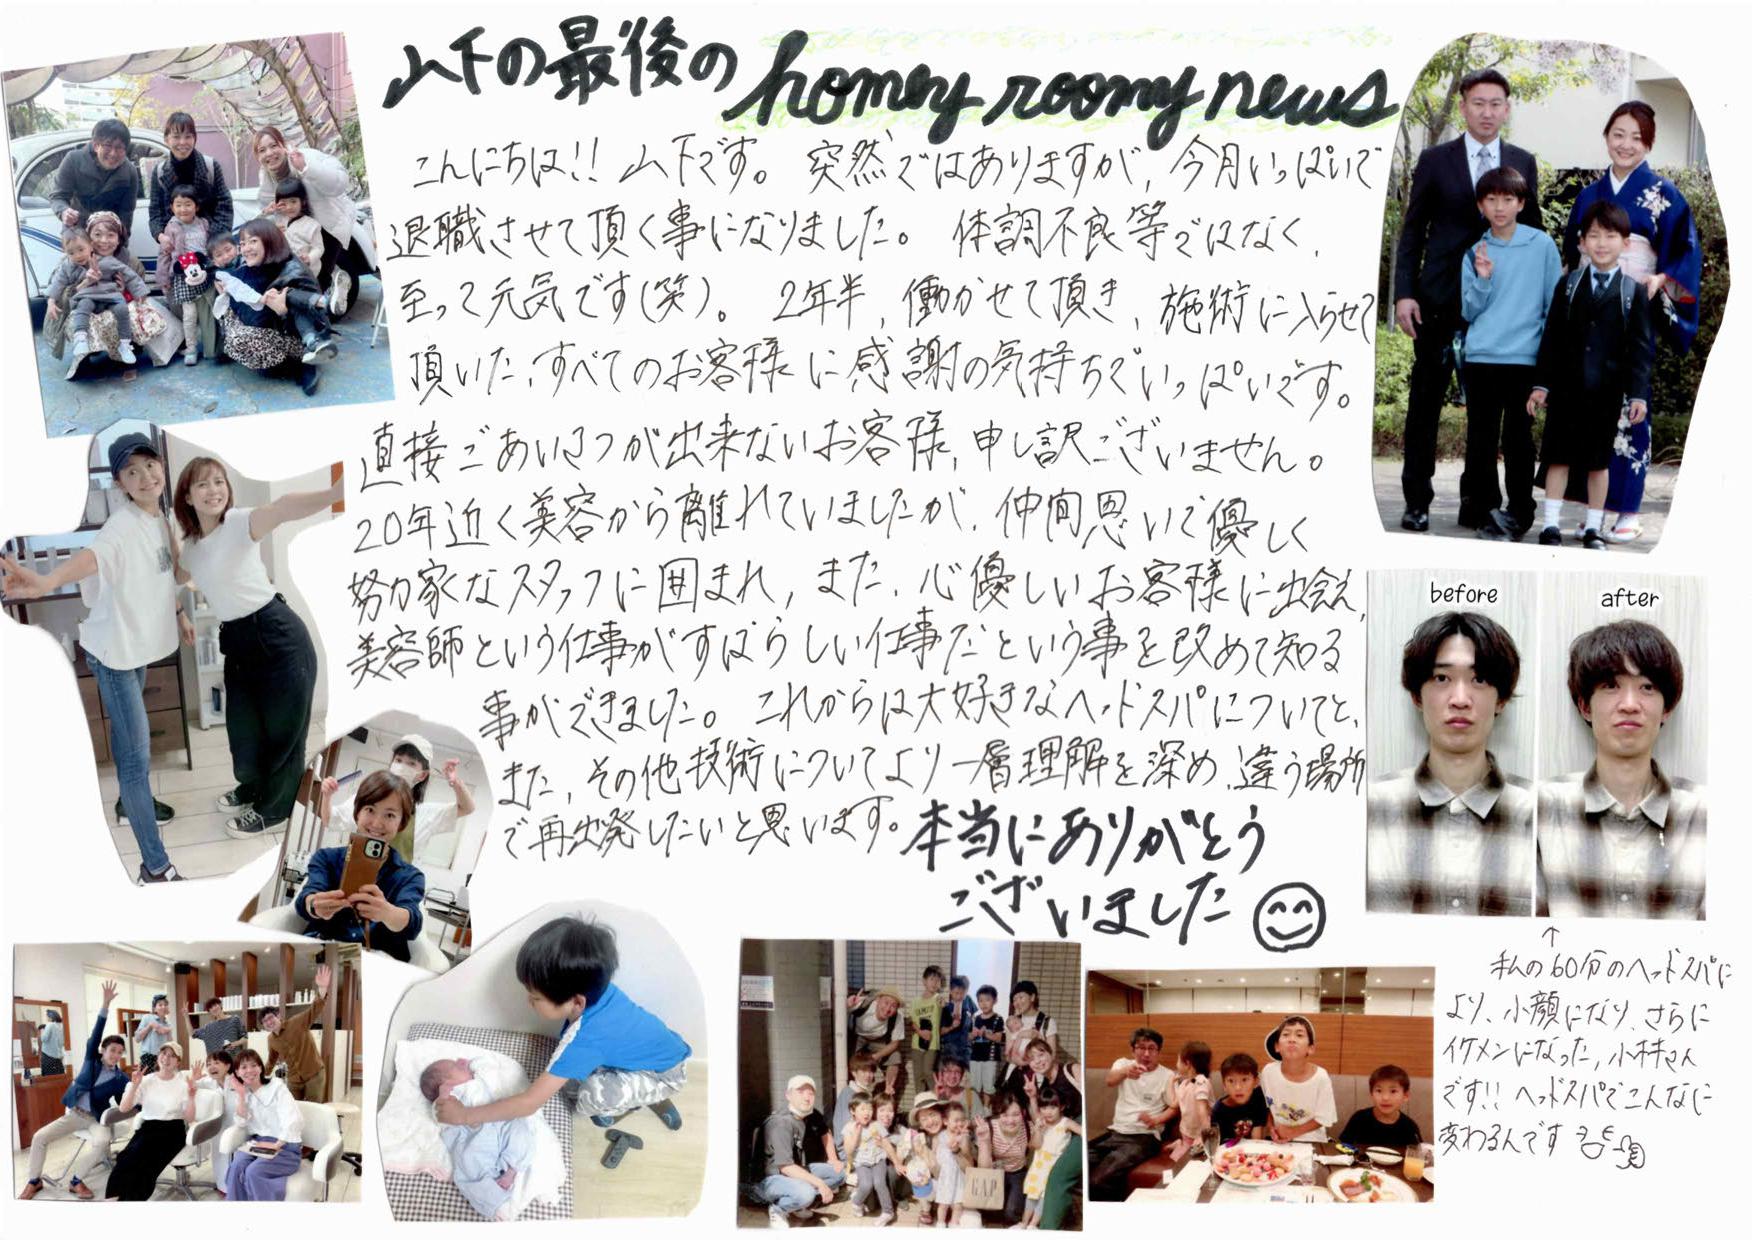 山下の最後の homey roomy news
こんにちは!! 山下です。 突然ではありますが、今月いっぱいで
退職させて頂く事になりました。 体調不良等ではなく、
至って元気です(笑)。 2年半、働かせて頂き、施術に入らせて
頂いた、すべてのお客様に感謝の気持ちでいっぱいです。
直接ごあいさつが出来ないお客様、申し訳ございません。
20年近く美容から離れていましたが、仲間思いで優しく
努力家なスタッフに囲まれ、また、心優しいお客様に出会え、
美容師という仕事がすばらしい仕事だという事を改めて知る
事ができました。 これからは大好きなヘッドスパについてと、
また、その他技術についてより一層理解を深め、違う場所
で再出発したいと思います。 本当にありがとう
ございました
before
after
↑
私の60分のヘッドスパに
より、小顔になり、さらに
イケメンになった、小林さん
です!! ヘッドスパでこんなに
変わるんです
GAP